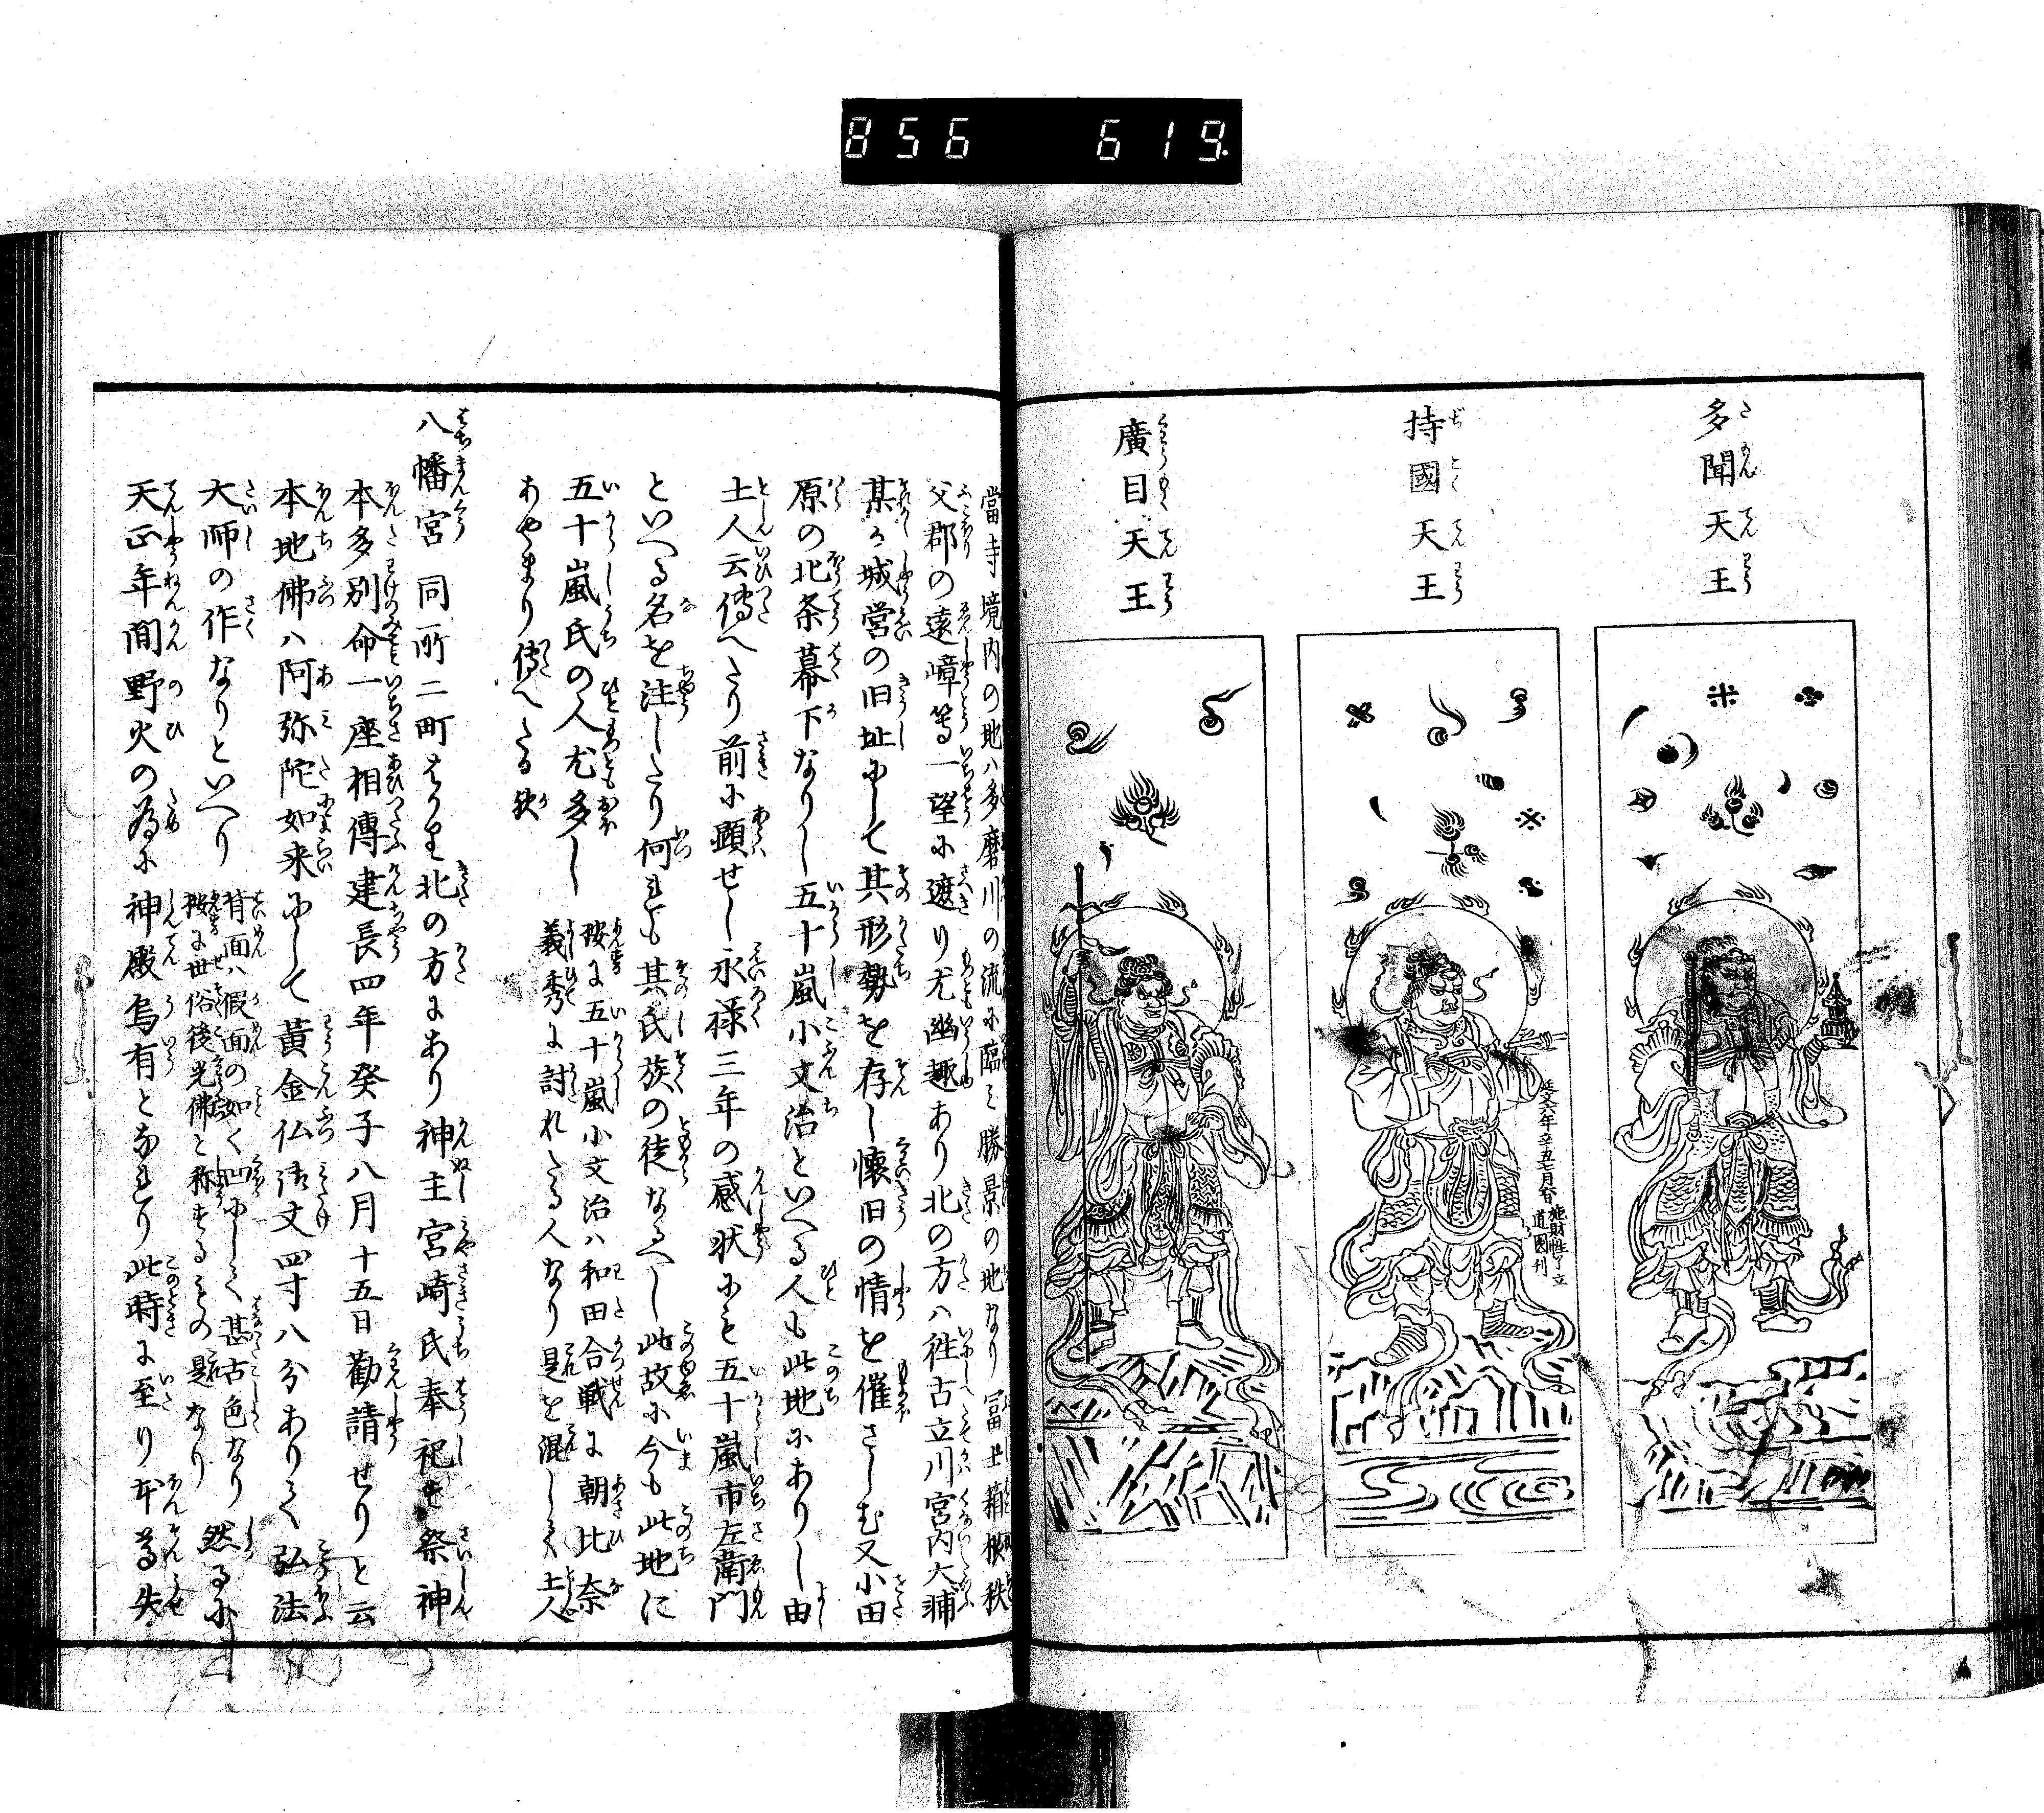 856 619
多聞天王
持國天王
廣目天王
延文六年辛丑七月
道圓刊
當寺境内の地ハ多磨川の流に臨ミ勝景の地なり冨士箱根秩
父郡の遠嶂等一望に遮り尤幽趣あり北の方ハ往古立川宮内大輔
某の城営の旧址にして其形勢を存し懐旧の情を催さしむ又小田
原の北条幕下なりし五十嵐小文治といへる人も此地にありし由
土人云傳へたり前に顕せし永禄三年の感状にも五十嵐市左衛門
といへる名を注したり何れも其氏族の徒なるへし此故に今も此地に
五十嵐氏の人尤多し
按に五十嵐小文治ハ和田合戦に朝比奈
義秀に討れたる人なり是を混して土人
あやまり傳へたる歟
八幡宮 同所二町はかり北の方にあり神主宮﨑氏奉祀せ祭神
本多別命一座相傳建長四年癸子八月十五日勸請せりと云
本地佛ハ阿弥陀如来にして黄金仏御丈四寸八分ありて弘法
大師の作なりといへり
背面ハ假面の如く凹にして甚古色なり
按に世俗後光佛と称するもの是なり
然るに
天正年間野火の為に神殿烏有となれり此時に至り本尊失